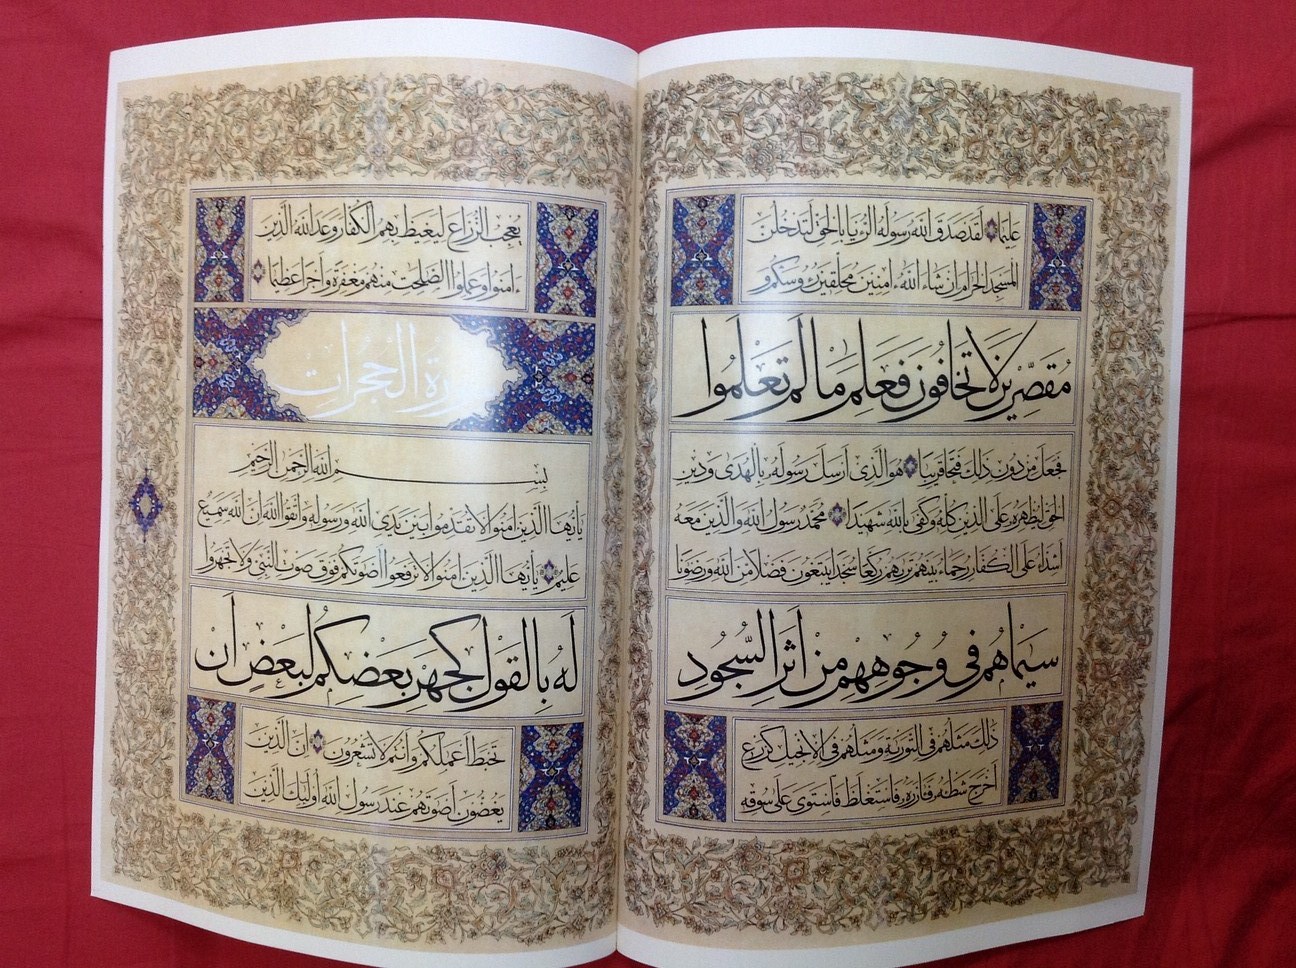 عليما لقد صدق الله رسوله الرءيا بالحق لتدخلن
المسجد الحرام ان شاء الله ءامنين محلقين رءوسكم و
مقصرين لا تخافون فعلم ما لم تعلموا
فجعل من دون ذلك فتحا قريبا هو الذي ارسل رسوله بالهدى ودين
الحق ليظهره على الدين كله وكفى بالله شهيدا محمد رسول الله والذين معه
اشداء على الكفار رحماء بينهم تريهم ركعا سجدا يبتغون فضلا من الله ورضونا
سيماهم في وجوههم من اثر السجود
ذلك مثلهم في التورية ومثلهم في الانجيل كزرع
اخرج شطئه فازره فاستغلظ فاستوى على سوقه
يعجب الزراع ليغيظ بهم الكفار وعد الله الذين
ءامنوا وعملوا الصلحت منهم مغفرة واجرا عظيما
سورة الحجرات
بسم الله الرحمن الرحيم
يأيها الذين امنوا لا تقدموا بين يدي الله ورسوله واتقوا الله ان الله سميع
عليم يأيها الذين امنوا لا ترفعوا اصوتكم فوق صوت النبي ولا تجهروا
له بالقول كجهر بعضكم لبعض ان
تحبط اعملكم وانتم لا تشعرون ان الذين
يغضون اصوتهم عند رسول الله اولئك الذين